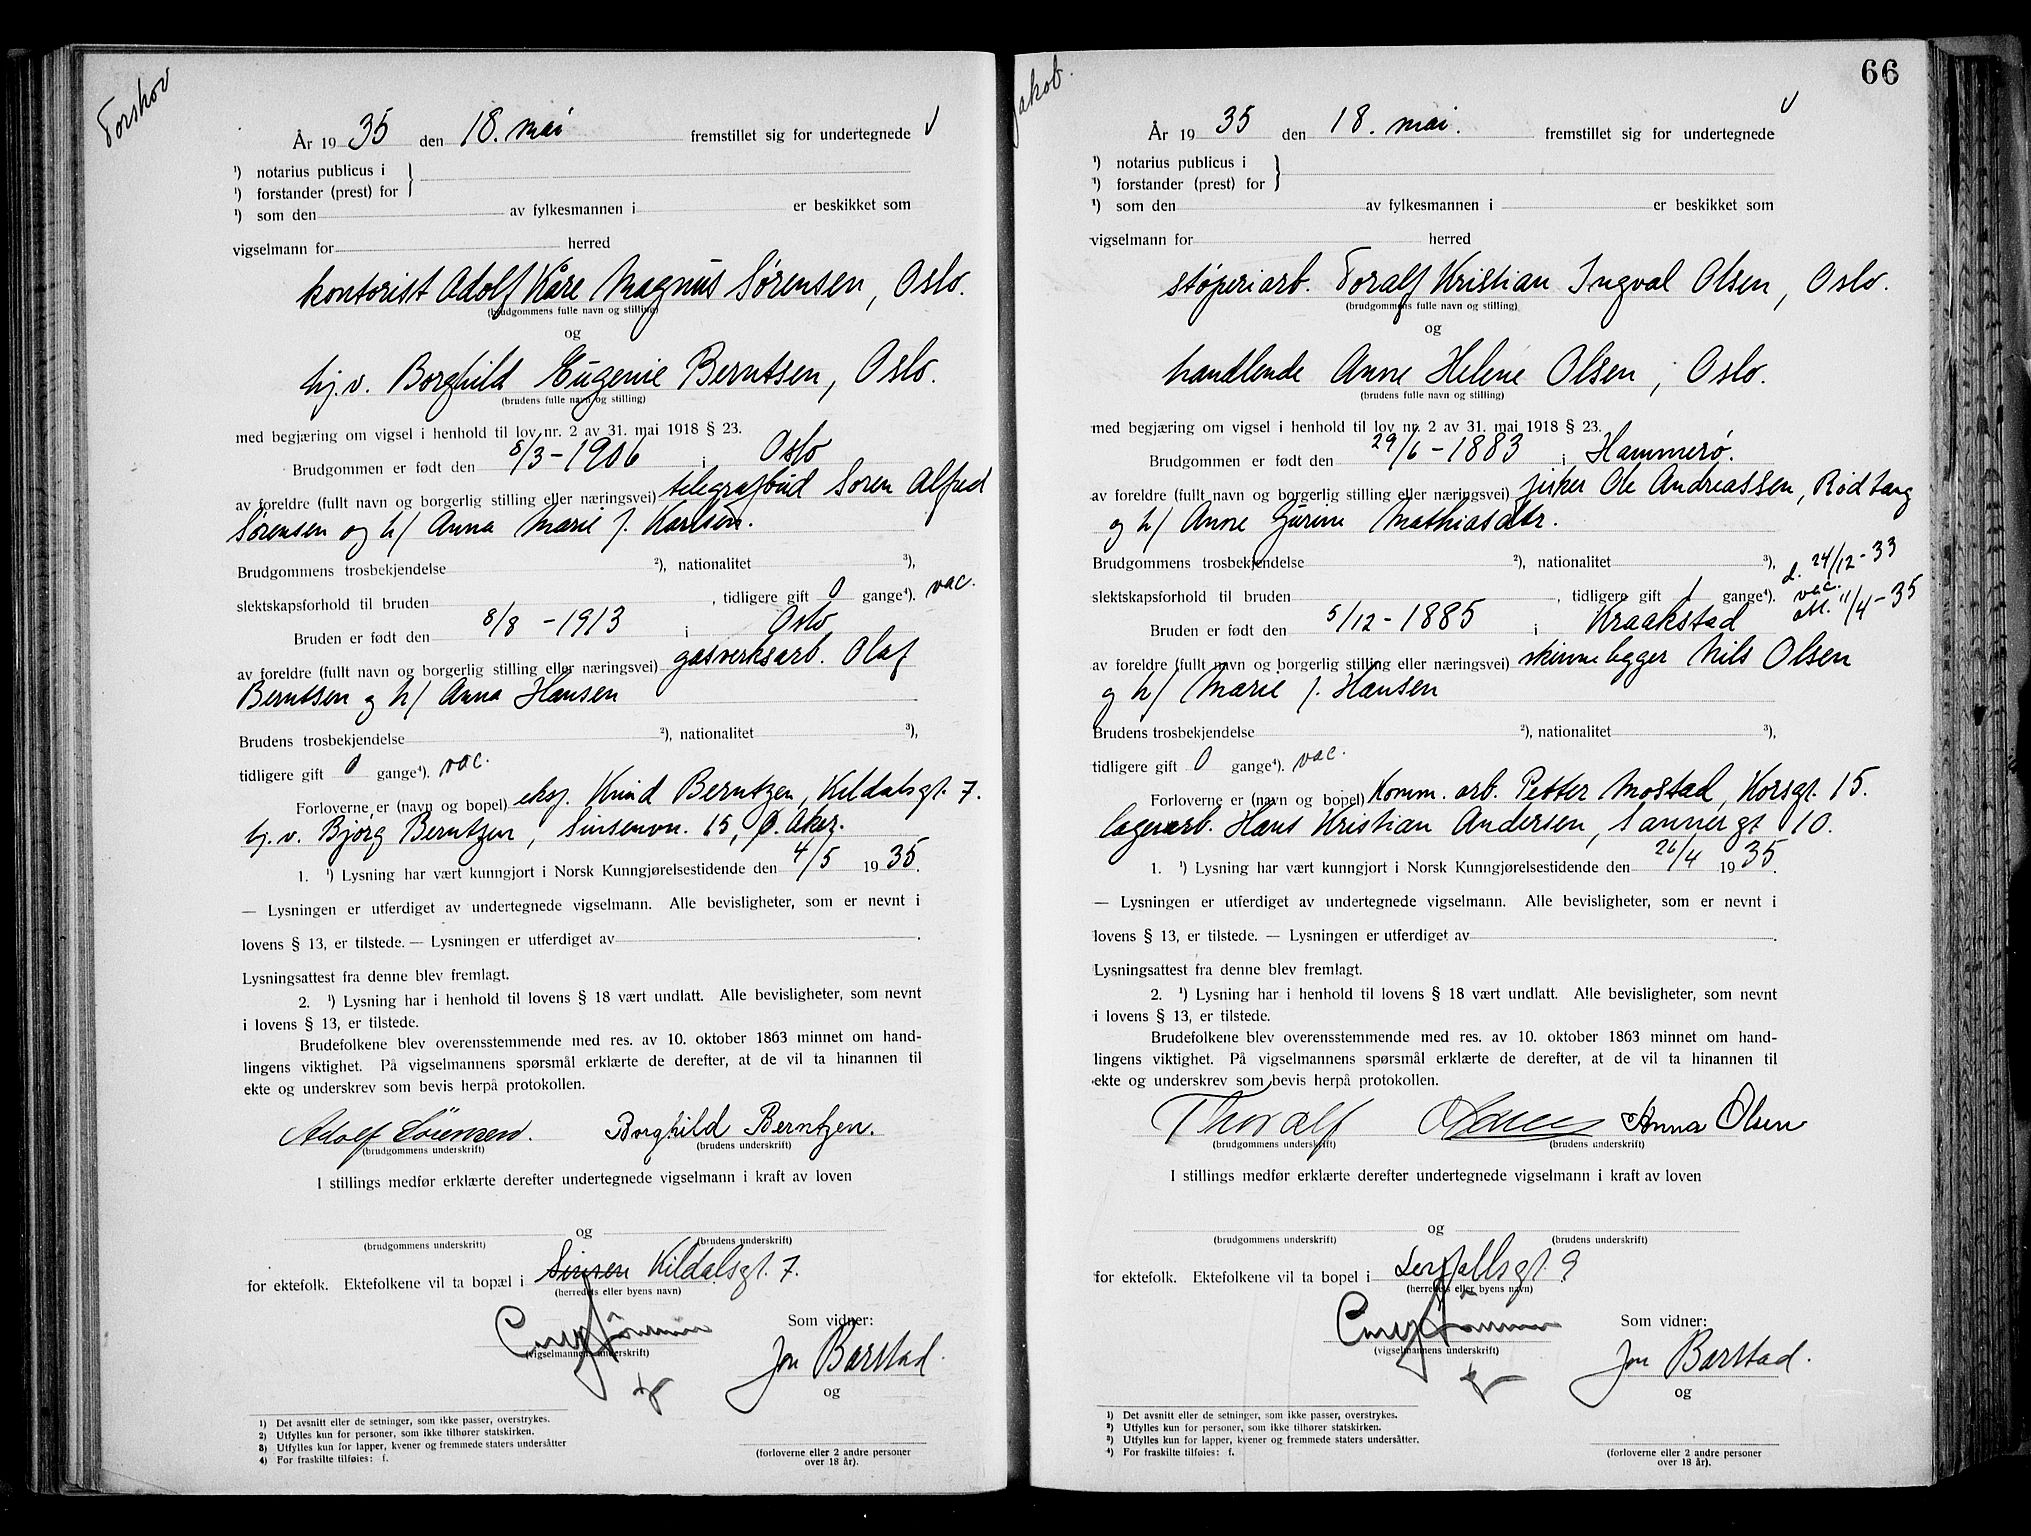 Torshov
År 1935 den 18. mai fremstillet sig for undertegnede
¹) notarius publicus i
¹) forstander (prest) for
¹) som den av fylkesmannen i er beskikket som
vigselmann for herred
kontorist Adolf Kåre Magnus Sørensen, Oslo.
(brudgommens fulle navn og stilling)
og
hj.v. Borghild Eugenie Berntsen, Oslo.
(brudens fulle navn og stilling)
med begjæring om vigsel i henhold til lov nr. 2 av 31. mai 1918 § 23.
Brudgommen er født den 8/3-1906 i Oslo
av foreldre (fullt navn og borgerlig stilling eller næringsvei) telegrafbud Søren Alfred
Sørensen og h/ Anna Marie f. Karlsen.
Brudgommens trosbekjendelse ²), nationalitet ³),
slektskapsforhold til bruden , tidligere gift 0 gange⁴). vac.
Bruden er født den 8/8-1913 i Oslo
av foreldre (fullt navn og borgerlig stilling eller næringsvei) gasverksarb. Olaf
Berntsen og h/ Anna Hansen
Brudens trosbekjendelse ²), nationalitet ³),
tidligere gift 0 gange⁴). vac.
Forloverne er (navn og bopel) eksp. Knud Berntzen, Kildalsgt. 7.
hj.v. Bjørg Berntzen, Sinsenvn. 15, Ø. Aker.
1. ¹) Lysning har vært kunngjort i Norsk Kunngjørelsestidende den 4/5 1935.
— Lysningen er utferdiget av undertegnede vigselmann. Alle bevisligheter, som er nevnt i
lovens § 13, er tilstede. — Lysningen er utferdiget av .
Lysningsattest fra denne blev fremlagt.
2. ¹) Lysning har i henhold til lovens § 18 vært undlatt. Alle bevisligheter, som nevnt
i lovens § 13, er tilstede.
Brudefolkene blev overensstemmende med res. av 10. oktober 1863 minnet om hand-
lingens viktighet. På vigselmannens spørsmål erklærte de derefter, at de vil ta hinannen til
ekte og underskrev som bevis herpå protokollen.
Adolf Sørensen. Borghild Berntzen.
(brudgommens underskrift) (brudens underskrift)
I stillings medfør erklærte derefter undertegnede vigselmann i kraft av loven
og
(brudgommens underskrift) (brudens underskrift)
for ektefolk. Ektefolkene vil ta bopæl i Sinsen Kildalsgt. 7.
(herredets eller byens navn)
Som vidner:
(vigselmannens underskrift)
Jon Barstad.
og
1) Det avsnitt eller de setninger, som ikke passer, overstrykes.
2) Utfylles kun for personer, som ikke tilhører statskirken.
3) Utfylles kun for lapper, kvener og fremmede staters undersåtter
4) For fraskilte tilføies: f.
(forloverne eller 2 andre personer
over 18 år).
66
Jakob.
År 1935 den 18. mai. fremstillet sig for undertegnede
¹) notarius publicus i
¹) forstander (prest) for
¹) som den av fylkesmannen i er beskikket som
vigselmann for herred
støperiarb. Toralf Kristian Ingval Olsen, Oslo.
(brudgommens fulle navn og stilling)
og
handlende Anne Helene Olsen, Oslo.
(brudens fulle navn og stilling)
med begjæring om vigsel i henhold til lov nr. 2 av 31. mai 1918 § 23.
Brudgommen er født den 29/6-1883 i Hammerø.
av foreldre (fullt navn og borgerlig stilling eller næringsvei) fisker Ole Andreassen, Rødtang
og h/ Anne Gurine Mathiasdtr.
Brudgommens trosbekjendelse ²), nationalitet ³), d. 24/12-33
slektskapsforhold til bruden , tidligere gift 1 gange⁴). vac.
11/4-35
Bruden er født den 5/12-1885 i Kraakstad
av foreldre (fullt navn og borgerlig stilling eller næringsvei) skinnelegger Nils Olsen
og h/ Marie f. Hansen
Brudens trosbekjendelse ²), nationalitet ³),
tidligere gift 0 gange⁴). vac.
Forloverne er (navn og bopel) Komm. arb. Petter Mostad, Korsgt. 15.
lagerarb. Hans Kristian Andersen, Sannergt 10.
1. ¹) Lysning har vært kunngjort i Norsk Kunngjørelsestidende den 26/4 1935.
— Lysningen er utferdiget av undertegnede vigselmann. Alle bevisligheter, som er nevnt i
lovens § 13, er tilstede. — Lysningen er utferdiget av .
Lysningsattest fra denne blev fremlagt.
2. ¹) Lysning har i henhold til lovens § 18 vært undlatt. Alle bevisligheter, som nevnt
i lovens § 13, er tilstede.
Brudefolkene blev overensstemmende med res. av 10. oktober 1863 minnet om hand-
lingens viktighet. På vigselmannens spørsmål erklærte de derefter, at de vil ta hinannen til
ekte og underskrev som bevis herpå protokollen.
Thoralf Olsen Anna Olsen
(brudgommens underskrift) (brudens underskrift)
I stillings medfør erklærte derefter undertegnede vigselmann i kraft av loven
og
(brudgommens underskrift) (brudens underskrift)
for ektefolk. Ektefolkene vil ta bopel i Lerfallsgt. 9
(herredets eller byens navn)
Som vidner:
(vigselmannens underskrift)
Jon Barstad.
og
1) Det avsnitt eller de setninger, som ikke passer, overstrykes.
2) Utfylles kun for personer, som ikke tilhører statskirken.
3) Utfylles kun for lapper, kvener og fremmede staters undersåtter.
4) For fraskilte tilføies: f.
(forloverne eller 2 andre personer
over 18 år).